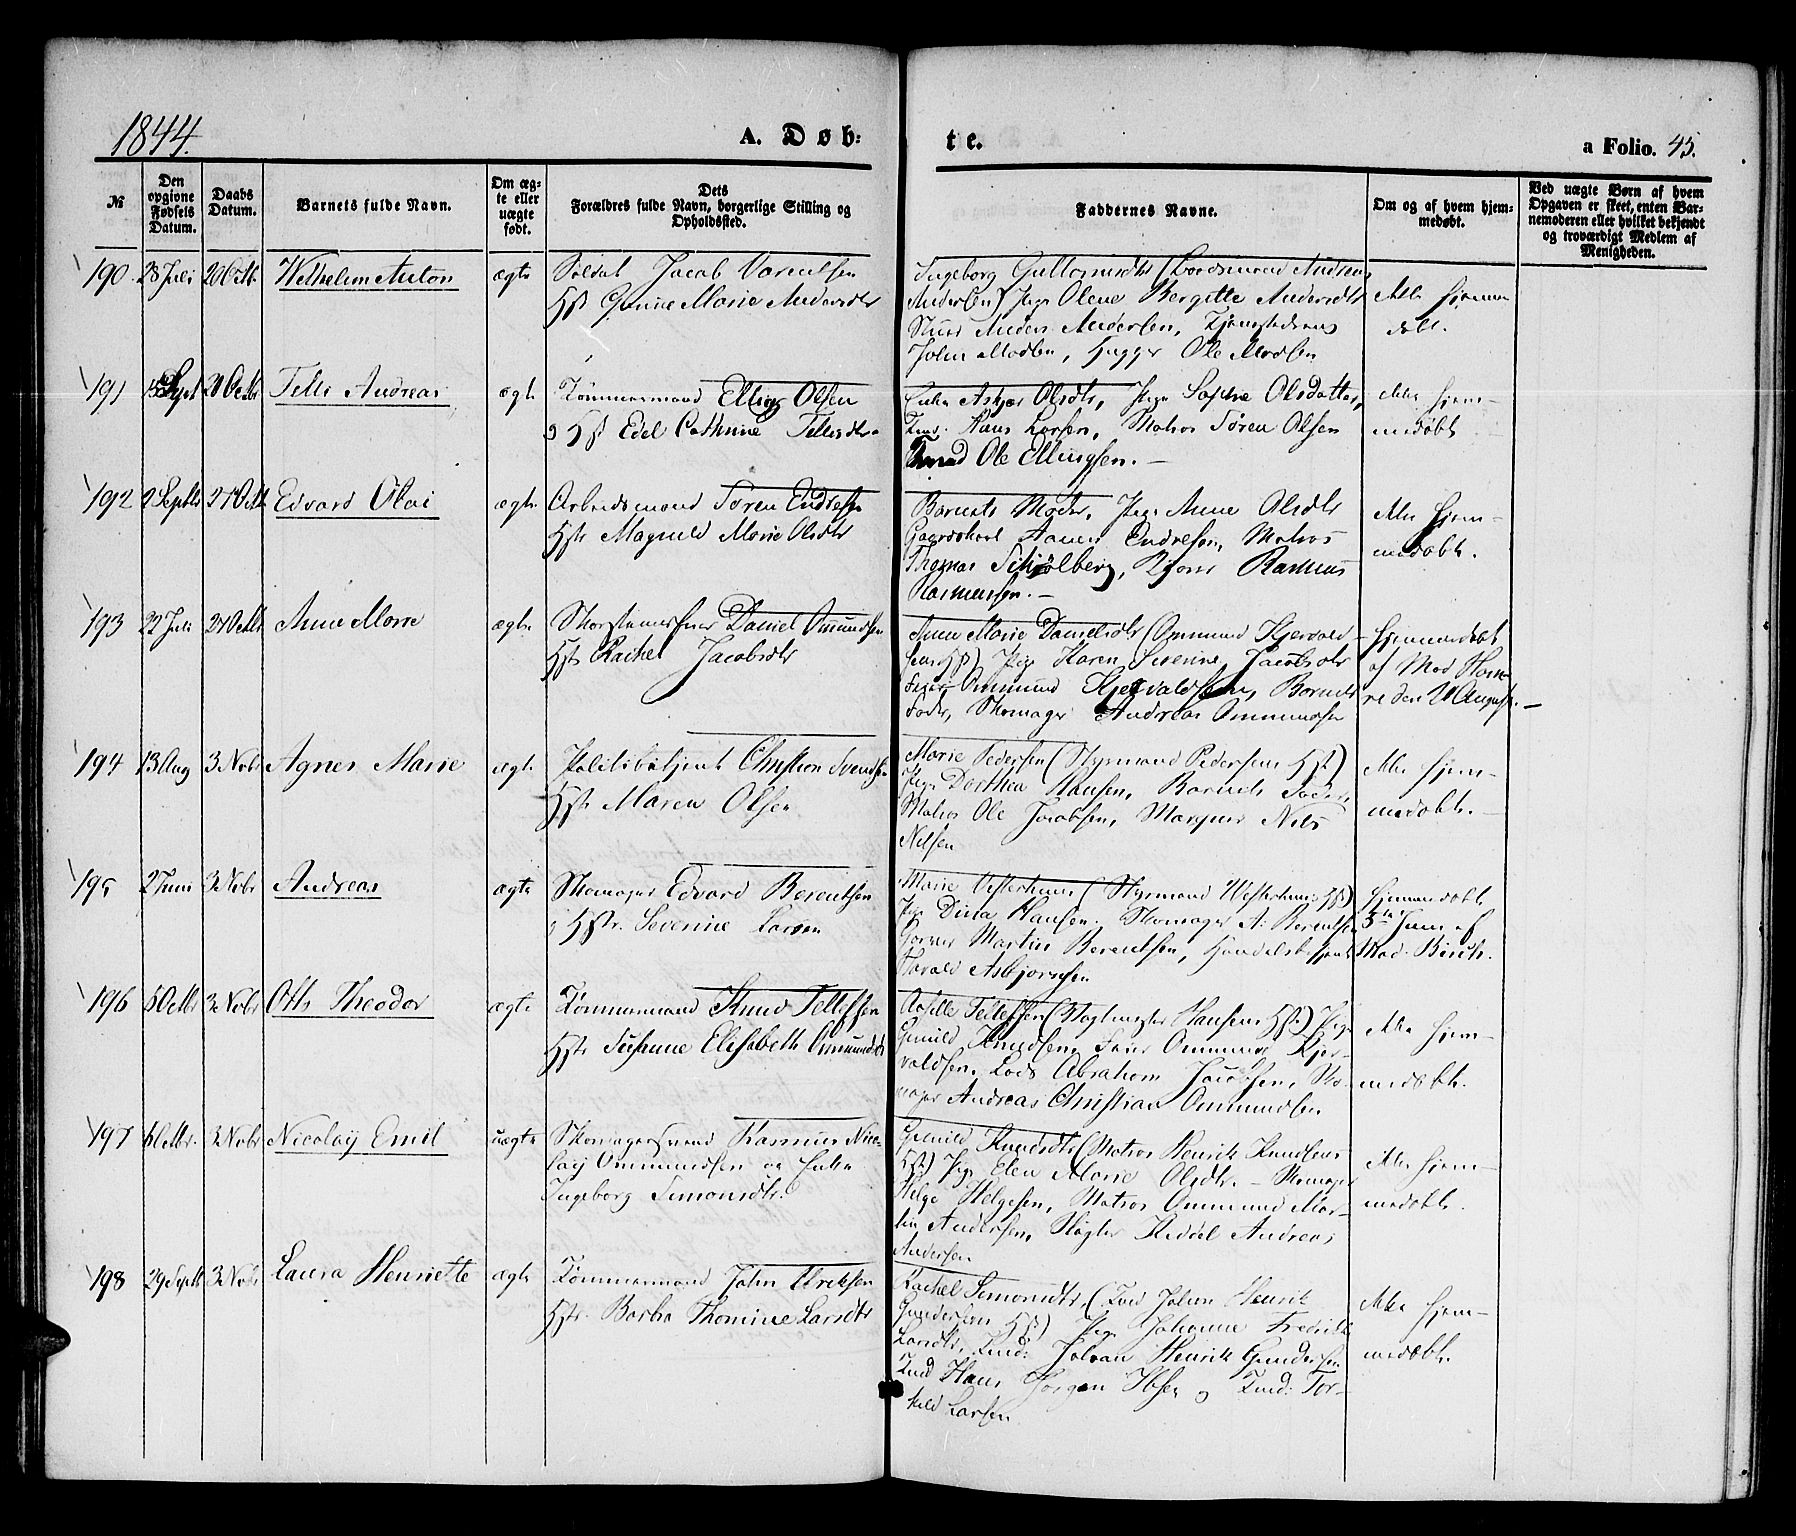 1844.
A. Døb:
te.
a Folio. 45.
№
Den opgivne Fødsels Datum.
Daabs Datum.
Barnets fulde Navn.
Om ægte eller uægte født.
Dets Forældres fulde Navn, borgerlige Stilling og Opholdssted.
Faddernes Navne.
Om og af hvem hjemmedøbt.
Ved uægte Børn af hvem Opgaven er skeet, enten Barnemoderen eller hvilket bekjendt og troværdigt Medlem af Menigheden.
190 28 Juli 20 Octb Wilhelm Anton ægte Soldat Jacob Torentsen
Hst Gunne Marie Andersdtr
Ingeborg Guttormsdtr (Lodsmand Andreas
Andersen) Pige Olene Bergitte Andersdtr
Anders Andersen,
John Madsen, Hugger Ole Madsen
ikke hjemme
døbt.
191 Sept 20 Octbr Tellis Andreas ægte Tømmermand Elling Olsen
Hst Edel Cathrine Tellisdtr
Enke Olsdtr, Pige Sophie Olsdatter,
Tmd. Hans Larsen, Matros Søren Olsen
Tmd Ole Ellingsen. —
ikke hjem-
medøbt
192 2 Septbr 27 Octb Edvard Olai ægte Arbeidsmand Søren Endresen
Hstr Magnild Marie Olsdtr
Barnets Moder, Pige Anne Olsdtr
Gaardskarl Aanen Endresen, Matros
Thomas Schiølberg, Rasmus
Rasmussen. —
ikke hjem-
medøbt.
193 22 Juli 27 Octbr Anne Marie ægte Skorsteensfeier Daniel Ommundsen
Hstr Rachel Jacobsdtr
Anne Marie Danielsdtr (Ommund Kjervald-
sens Hst) Pige Karen Severine Jacobsdtr
Feier Ommund Kjervaldsen, Barnets
Fader, Skomager Andreas Ommundsen
hjemmedøbt
af Mad
den August. —
194 13 Aug 3 Novbr Agnes Marie ægte Politibetjent Christian Svendsen
Hstr Maren Olsen
Marie Pedersen (Styrmand Pedersens Hst)
Pige Dorthea Hansen, Barnets Fader,
Matros Ole Jacobsen, Nils
Nilsen
ikke hjem-
medøbt.
195 2 Juni 3 Novbr Andreas ægte Skomager Edvard Berentsen
Hstr. Severine Larsen
Marie Vesterhuus (Styrmand Westerhuus Hst)
Pige Dina Hansen. Skomager A. Berentsen
Garver Martin Berentsen, Handelsbetjent
Harald Asbjørnsen
hjemmedøbt
3die Juni af
Mad. Birch.
196 6 Octbr 3 Novbr Otto Theodor ægte Tømmermand Knud Tellefsen
Hstr Susanne Elisabeth Ommundsdtr
Aasille Tellefsen (Vagtmester Hansens Hst) Pige
Gunild Knudsen, Feier Ommund Kjer-
valdsen, Lods Abraham Jacobsen, Sko-
mager Andreas Christian Ommundsen
ikke hjem-
medøbt.
197 6 Octbr. 3 Novbr Nicolay Emil uægte Skomagersvend Rasmus Nico-
lay Ommundsen og Enke
Ingeborg Simonsdtr.
Gunild Knudsdtr (Matros Henrik Knudsens
Hst) Pige Elen Marie Olsdtr. – Skomager
Helge Helgesen, Matros Ommund Mar-
tin Andersen, Slagter Keddel Andreas
Andersen
ikke hjem-
medøbt.
198 29 Septb 3 Novbr Laura Henriette ægte Tømmermand John Ulriksen
Hstr. Barbra Thomine Larsdtr
Rachel Simonsdtr, (Tmd Johan Henrik
Gundersens Hst) Pige Johanne Fredrikke
Larsdtr, Tmd: Johan Henrik Gundersen
Tmd Hans Jørgen Ibsen og Tmd: Tor-
kild Larsen
ikke hjem-
medøbt.